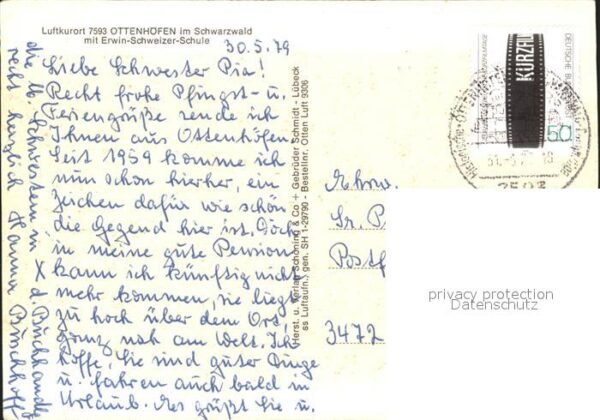 Luftkurort 7593 OTTENHÖFEN im Schwarzwald
mit Erwin-Schweizer-Schule
30.5.79
Liebe Schwester Pia!
Recht frohe Pfingst- u.
Feriengrüße sende ich
Ihnen aus Ottenhöfen
Seit 1959 komme ich
nun schon hierher, ein
Zeichen dafür wie schön
die Gegend hier ist. Doch
in meine gute Pension
kann ich künftig nicht
mehr kommen, sie liegt
zu hoch über dem Ort,
ganz nah am Welt. Ich
hoffe, Sie sind guter Dinge
u. fahren auch bald in
Urlaub. Es grüßt Sie u.
die Schwestern in d. Buchhandlg
recht herzlich Hanna Buschhoff
Herst. u. Verlag Schöning & Co + Gebrüder Schmidt - Lübeck
ss Luftaufn. gen. SH 1-29790 - Bestellnr. Otten Luft 9306
KURZFIL
50
Ehrw.
Sr. P
Postf
3472
privacy protection
Datenschutz